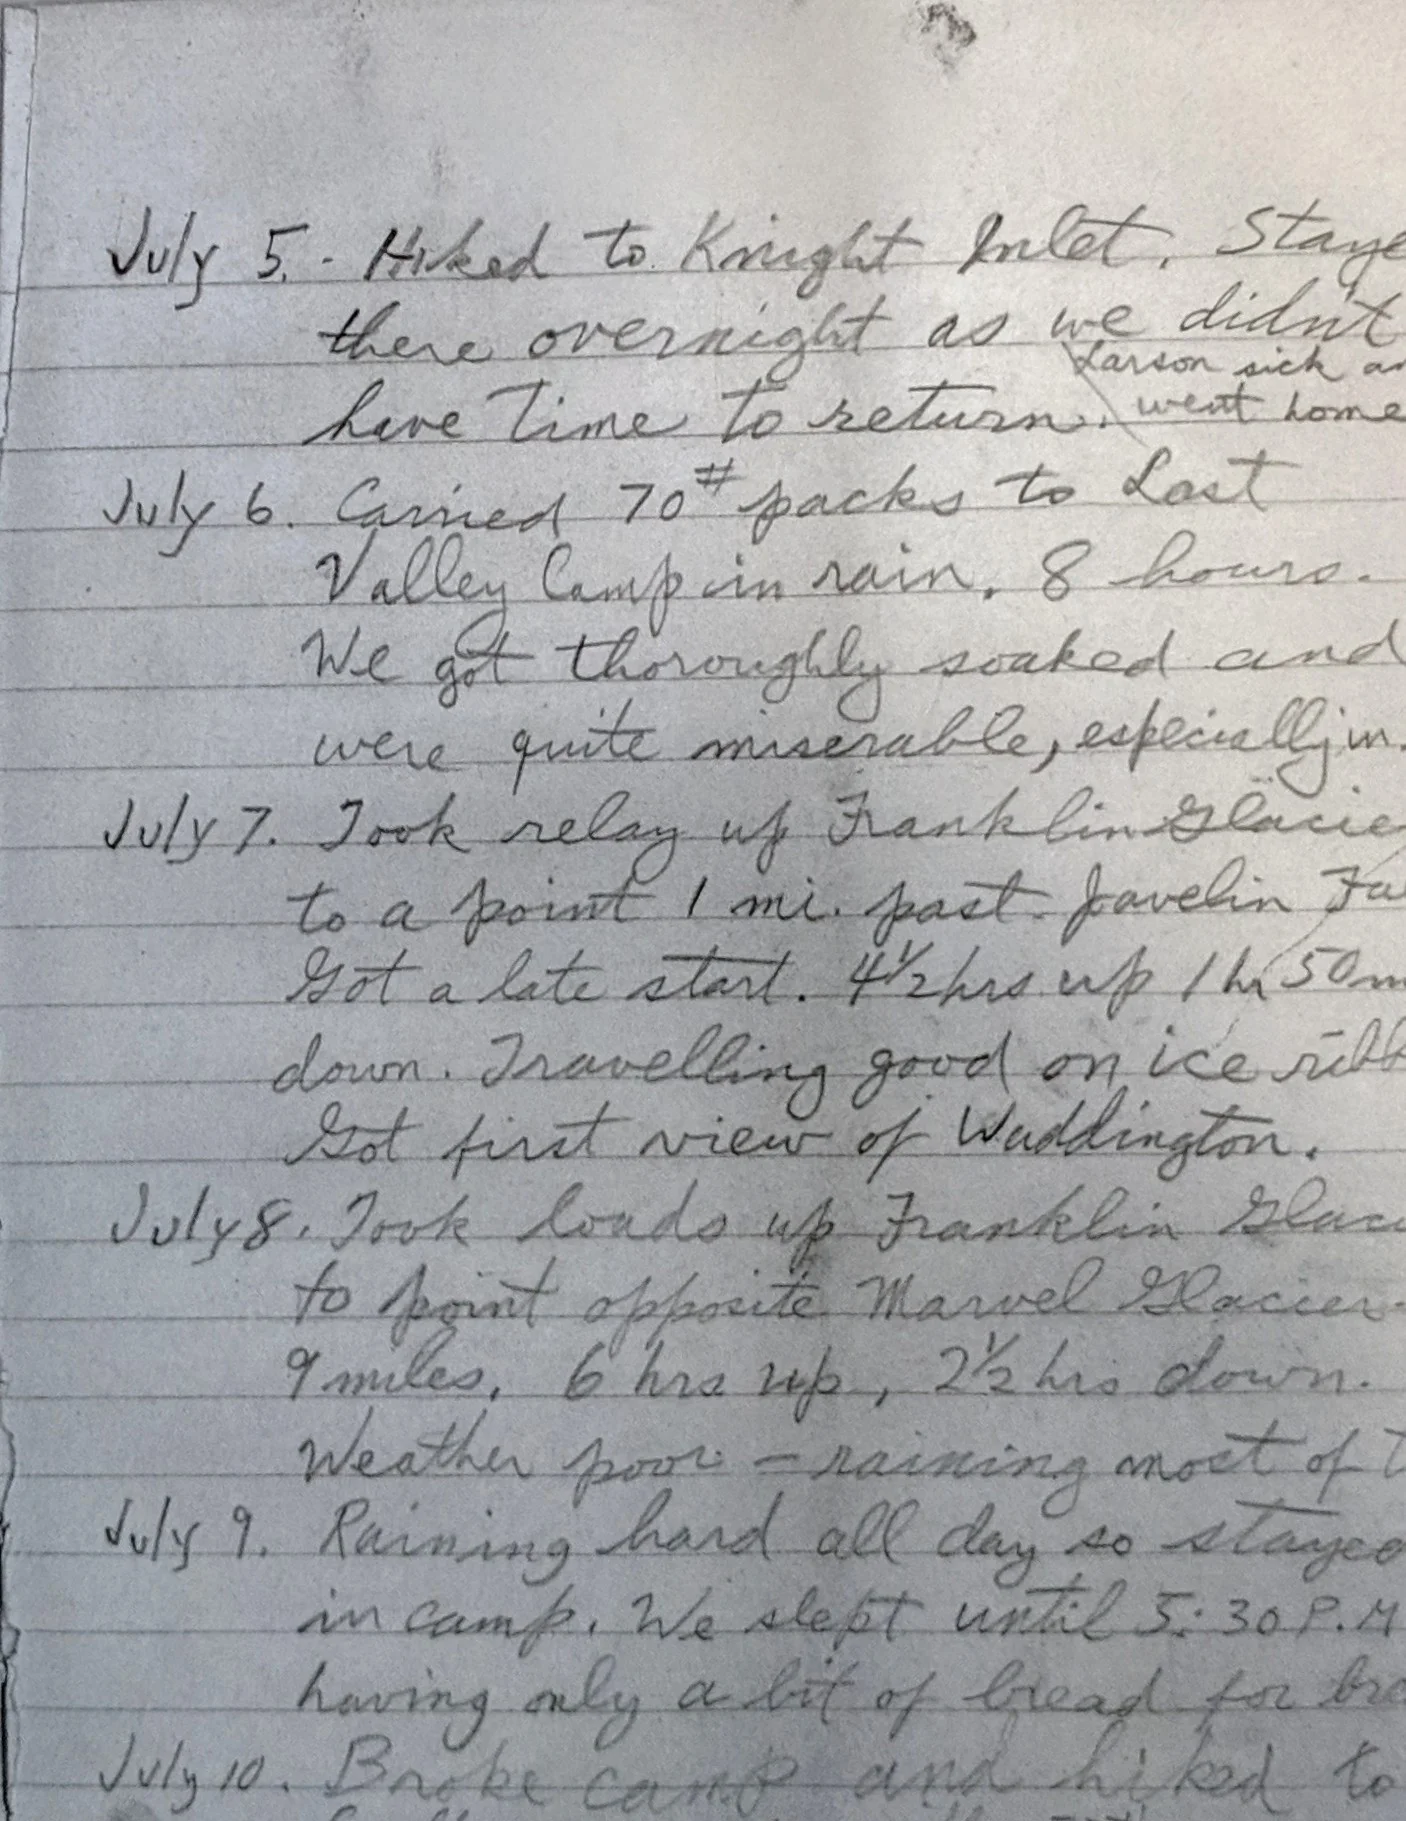 July 5. - Hiked to Knight Inlet. Staye
there overnight as we didn't
Larson sick an
have time to return. went home
July 6. Carried 70# packs to Last
Valley Camp in rain. 8 hours.
We got thoroughly soaked and
were quite miserable, especially m.
July 7. Took relay up Franklin Glacie
to a point 1 mi. past Javelin Fa
Got a late start. 4½ hrs up 1 hr 50 m
down. Travelling good on ice ribb
Got first view of Waddington.
July 8. Took loads up Franklin Glaci
to point opposite Marvel Glacier-
9 miles. 6 hrs up, 2½ hrs down.
Weather poor - raining most of t
July 9. Raining hard all day so stayed
in camp. We slept until 5:30 P.M
having only a bit of bread for bre
July 10. Broke camp and hiked to